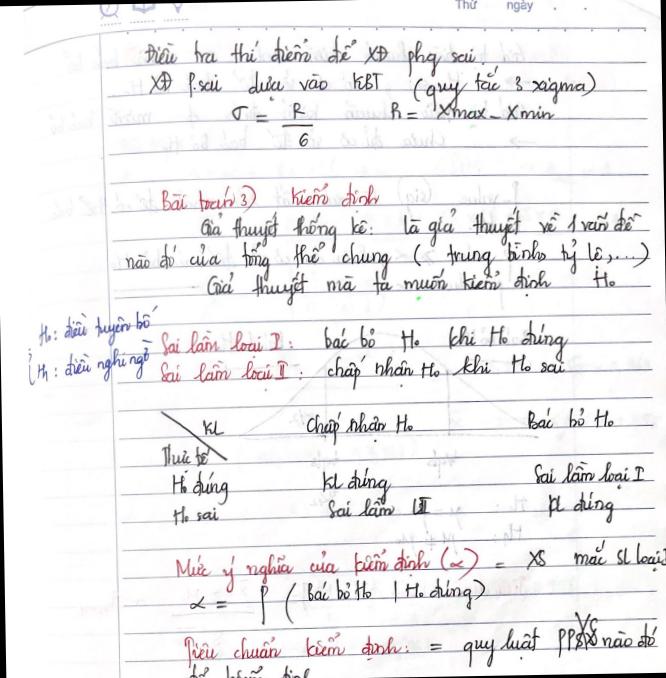 Thứ ngày
Điều tra thí điểm để XĐ phg sai
XĐ p.sai dựa vào KBT (quy tắc 3 xigma)
σ = R/6 R = Xmax - Xmin
Bài toán 3) Kiểm định
Giả thuyết thống kê: là giả thuyết về 1 vấn đề
nào đó của tổng thể chung (trung bình, tỷ lệ,...)
Giả thuyết mà ta muốn kiểm định H₀
H₀: điều tuyên bố
H₁: điều nghi ngờ
Sai lầm loại I: bác bỏ H₀ khi H₀ đúng
Sai lầm loại II: chấp nhận H₀ khi H₀ sai
KL Chấp nhận H₀ Bác bỏ H₀
Thực tế
H₀ đúng KL đúng Sai lầm loại I
H₀ sai Sai lầm LII KL đúng
Mức ý nghĩa của kiểm định (α) = XS mắc SL loại I
α = P (Bác bỏ H₀ | H₀ đúng)
Tiêu chuẩn kiểm định: = quy luật PPXS nào đó